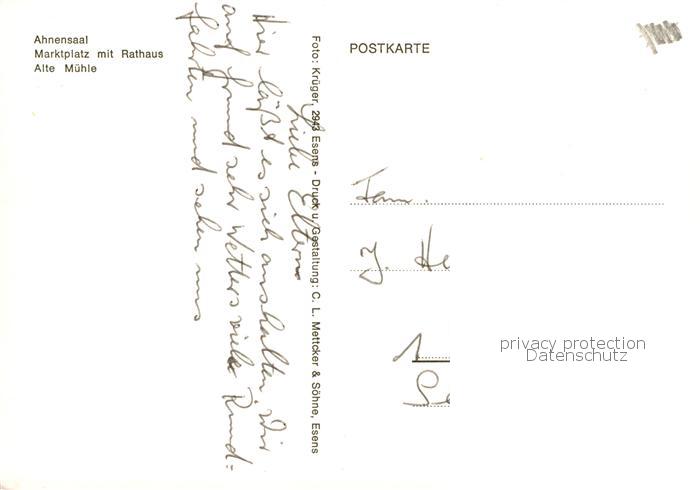 Ahnensaal
Marktplatz mit Rathaus
Alte Mühle
Liebe Eltern
Hier läßt es sich aushalten. Wir
auf Grund sehr Wetters viele Rund-
fahrten und sehen uns
Foto: Krüger, 2943 Esens - Druck u. Gestaltung: C. L. Mettcker & Söhne, Esens
POSTKARTE
Fam.
J. He
1
privacy protection
Datenschutz